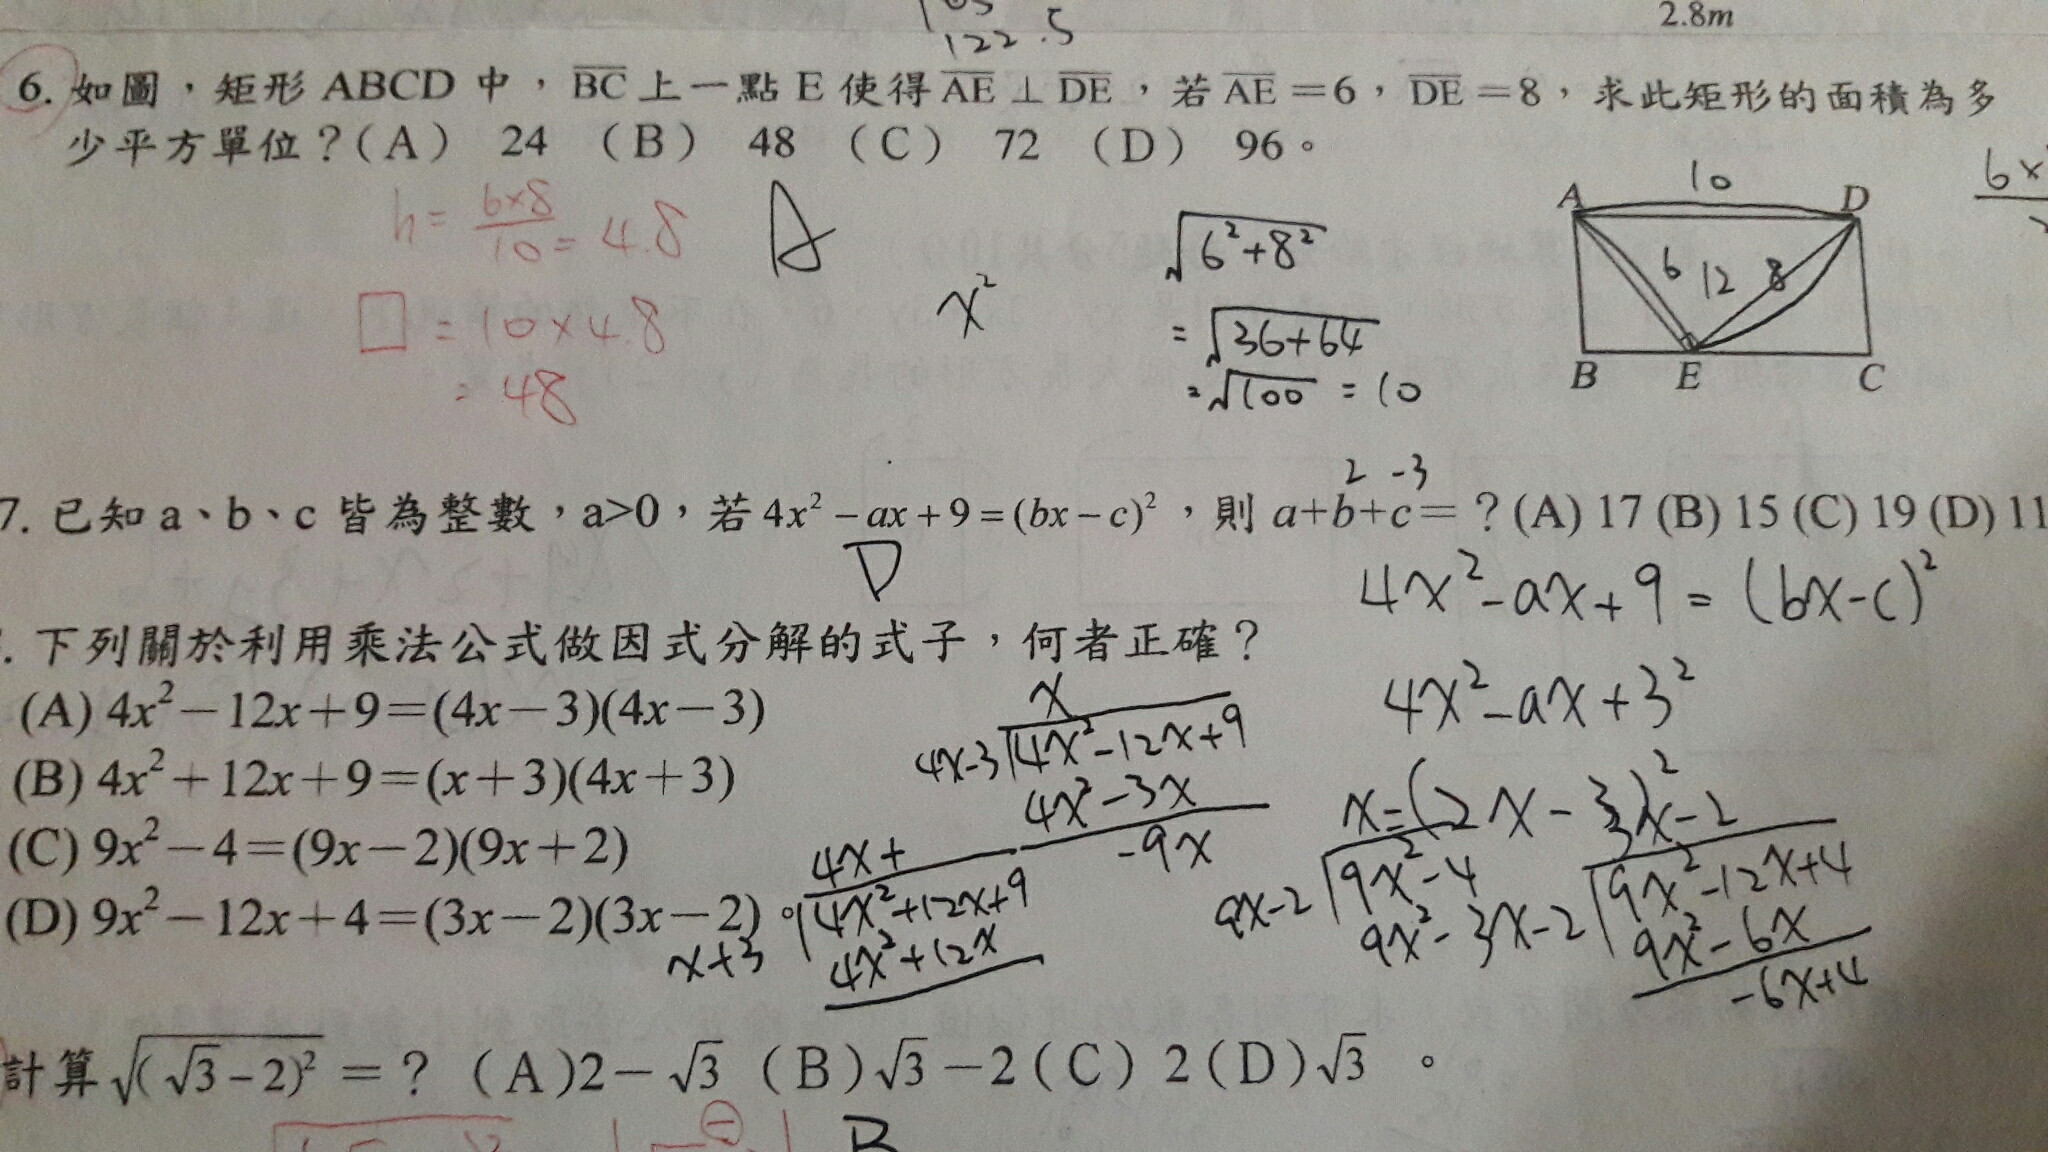 122.5
2.8m
6. 如圖，矩形 ABCD 中，B̅C̅ 上一點 E 使得 A̅E̅ ⊥ D̅E̅，若 A̅E̅ =6，D̅E̅ =8，求此矩形的面積為多
少平方單位？(A) 24 (B) 48 (C) 72 (D) 96。
h = 6×8/10 = 4.8
□ = 10×4.8
= 48
A
x²
√(6²+8²)
= √(36+64)
= √100 = 10
10
A D
6 12 8
B E C
2 -3
7. 已知 a、b、c 皆為整數，a>0，若 4x² − ax + 9 = (bx − c)²，則 a+b+c = ? (A) 17 (B) 15 (C) 19 (D) 11
D
4x²-ax+9 = (bx-c)²
4x²-ax+3²
(2x-3)²
. 下列關於利用乘法公式做因式分解的式子，何者正確？
(A) 4x²−12x+9=(4x−3)(4x−3)
(B) 4x²+12x+9=(x+3)(4x+3)
(C) 9x²−4=(9x−2)(9x+2)
(D) 9x²−12x+4=(3x−2)(3x−2)。
x
4x-3 4x²-12x+9
4x²-3x
-9x
4x+
x+3 4x²+12x+9
4x²+12x
x
9x-2 9x²-4
9x²-
3x-2
3x-2 9x²-12x+4
9x²-6x
-6x+4
計算 √(√3−2)² = ? (A)2−√3 (B)√3−2(C) 2(D)√3 。
B